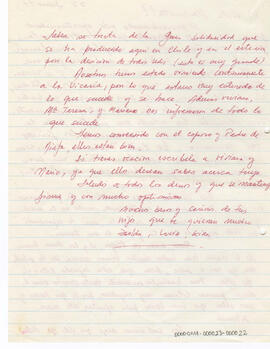 se trata de la gran solidaridad que
se ha producido aquí en Chile y en el exterior
por la decisión de todos Uds (esto es muy grande)
Nosotros hemos estado viniendo continuamente
a la Vicaría, por lo que estamos muy enterados de
lo que sucede y se hace. Además
M. Teresa, y Mariano nos informan de todo lo
que sucede
Hemos conversado con el y Pedro de
ellos están bien.
Si tienes ocasión escríbele a Mirian y
Mario, ya que ellos desean saber acerca tuyo
Saludos a todos los demás y que se mantengan
firmes y con mucho optimismo
Muchos besos y cariños de tus
hijos, que te quieren mucho
0000044-000023-000022